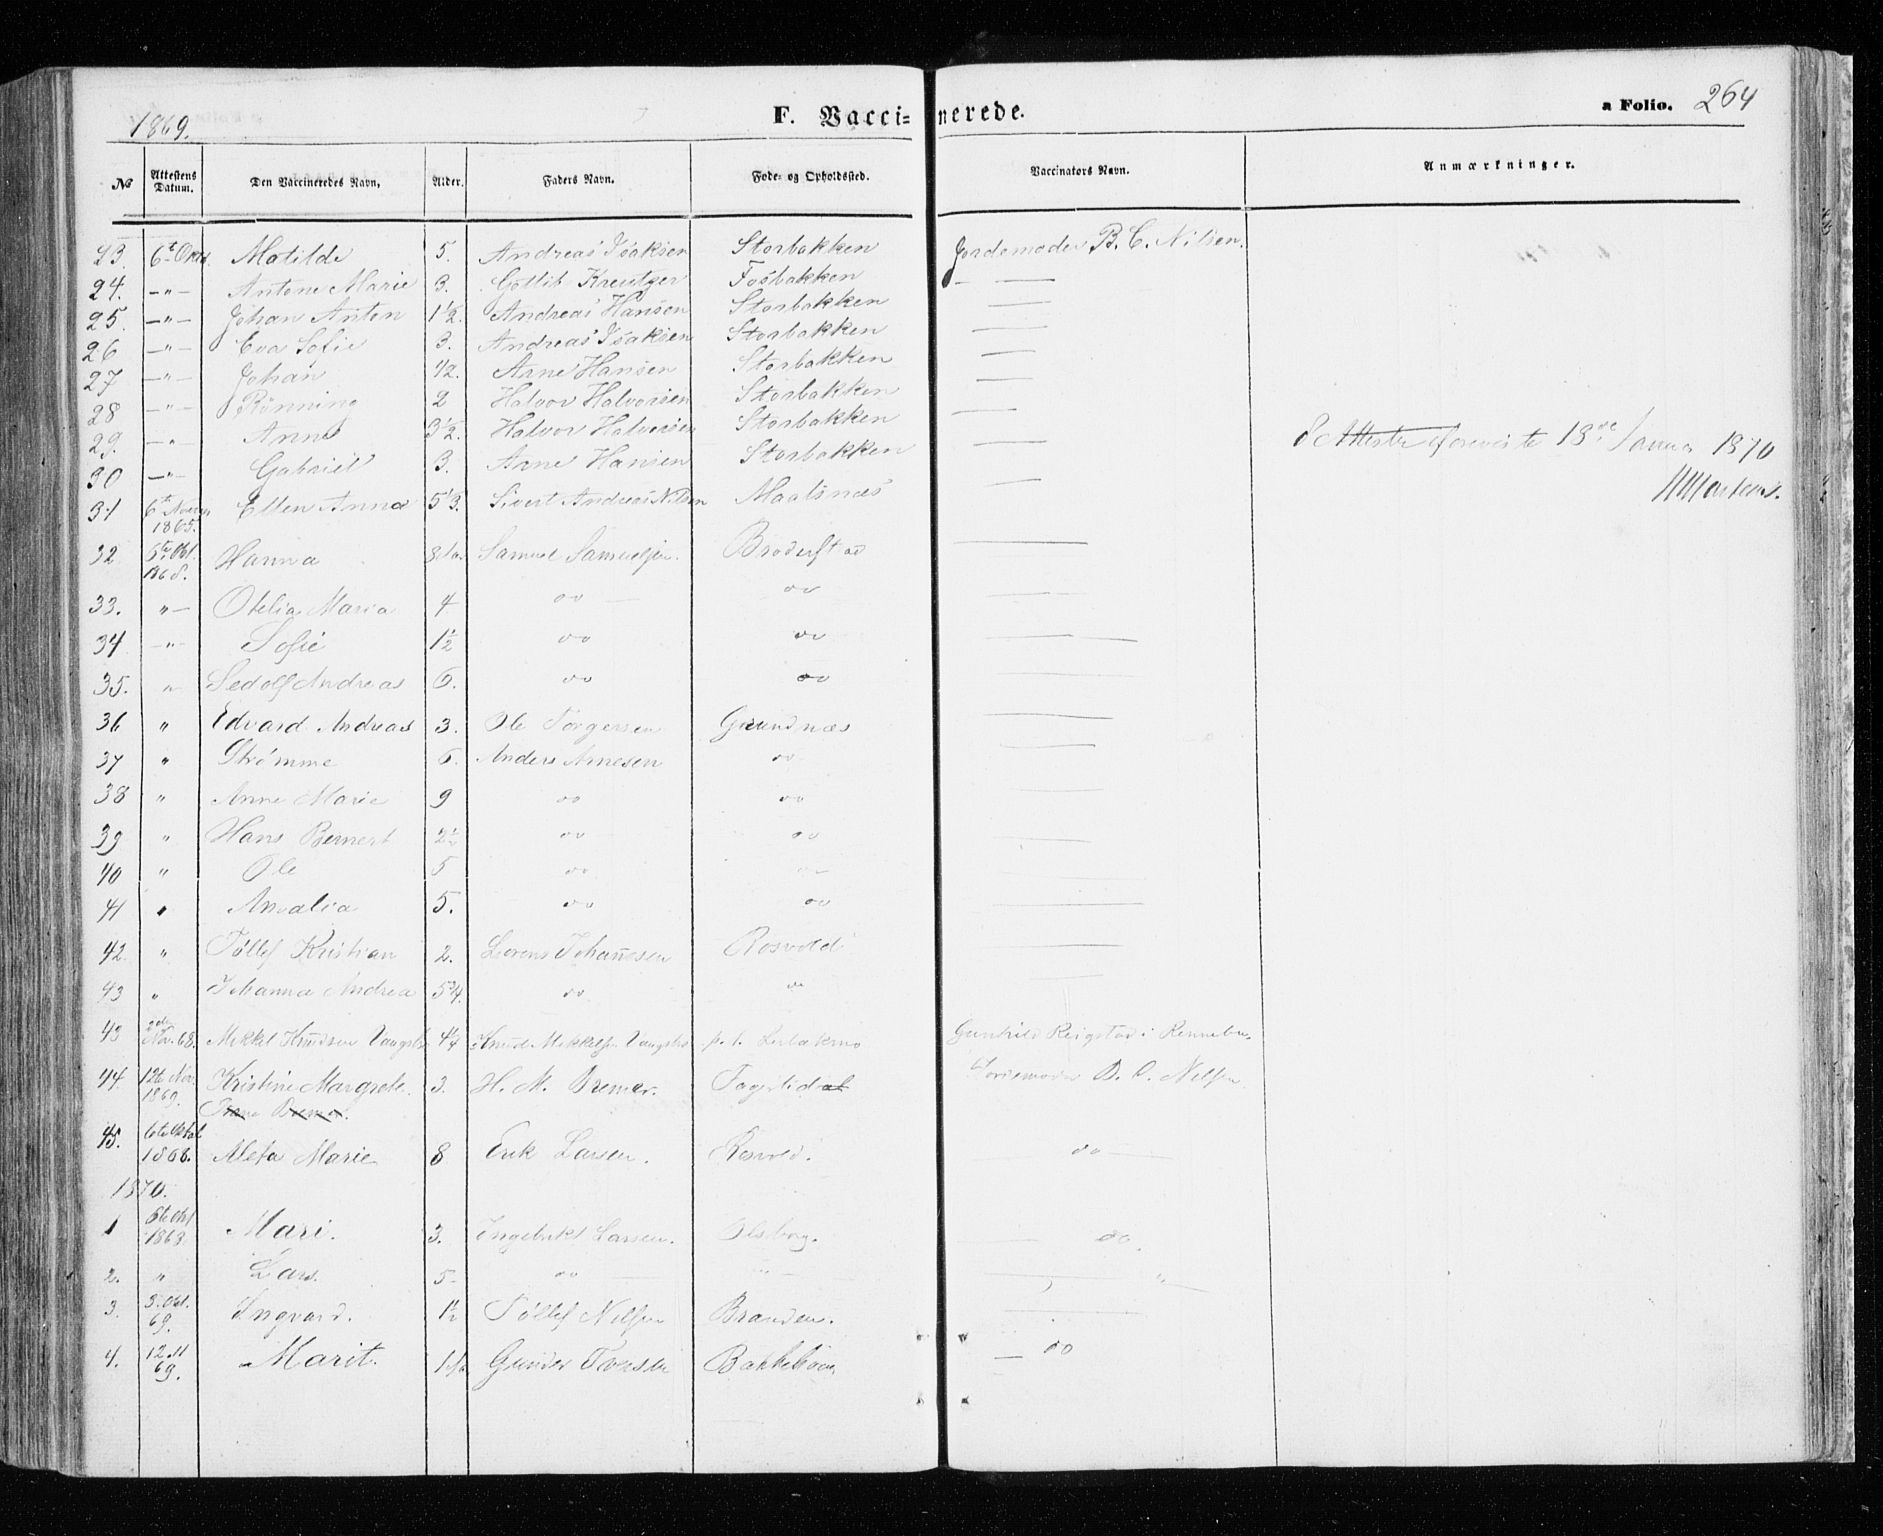 1869.
F. Vaccinerede.
a Folio. 264
No Attestens Datum. Den Vaccineredes Navn. Alder. Faders Navn. Føde- og Opholdssted. Vaccinators Navn. Anmærkninger.
23. 6te Matilde 5. Andreas Isaksen Storbakken Jordemoder B. C. Nilsen.
24. —"— Antone Marie 3. Gottlib Kreutzer Fosbakken
25. —"— Johan Anton 1½. Andreas Hansen Storbakken
26 —"— Eva Sofie 3. Andreas Isaksen Storbakken
27 —"— Johan ½. Arne Hansen Storbakken
28 —"— Rønning 2 Halvor Halvorsen Storbakken
29. —"— Anne 3½. Halvor Halvorsen Storbakken
30 —"— Gabriel 3. Arne Hansen Storbakken
Attester foreviste 18de Januar 1870
31 6te Novem 1865. Ellen Anna 5⅓. Sivert Andreas Nilsen Maalsnæs
32 6te Okt. 1868. Hanna Samuel Samuelsen. Broderstad
33. "— Otelia Maria 4 do do
34 —"— Sofie 1½ do do
35. " Sedolf Andreas 6. do do
36 " Edvard Andreas 3. Ole Torgersen Grundnæs
37 " Strømme 6. Anders Arnesen do
38 " Anne Marie 9 do do
39 " Hans Bernert 2½ do do
40 " Ole 5 do do
41 " Amalia 5. do do
42. " Tøllef Kristian 2. Lorens Johannesen Rosvold
43 " Johanna Andrea 5¾. do do
43 2den Nov. 68. Mikkel Knudsen 4¼ Knud Mikkelsen p. t. Gunhild Reigstad i Rennebu
44. 12te Nov. 1869. Kristine Margrete 3. H. M. Bremer. Fagerlidal Jordemoder B. C. Nilsen
45. 6te Oktob 1868. Aleta Marie 8 Erik Larsen. Rosvold. do
1870.
1 6te Okt 1868 Mari. 3. Ingebrikt Larsen. Olsborg. do.
2. " Lars. 5 do " "
3. 3. Okt. 69. Ingvard. 1½ Tøllef Nilsen Branden.
4. 12 11 69. Marit. 1½ Gunder Iversen Bakkehaug do